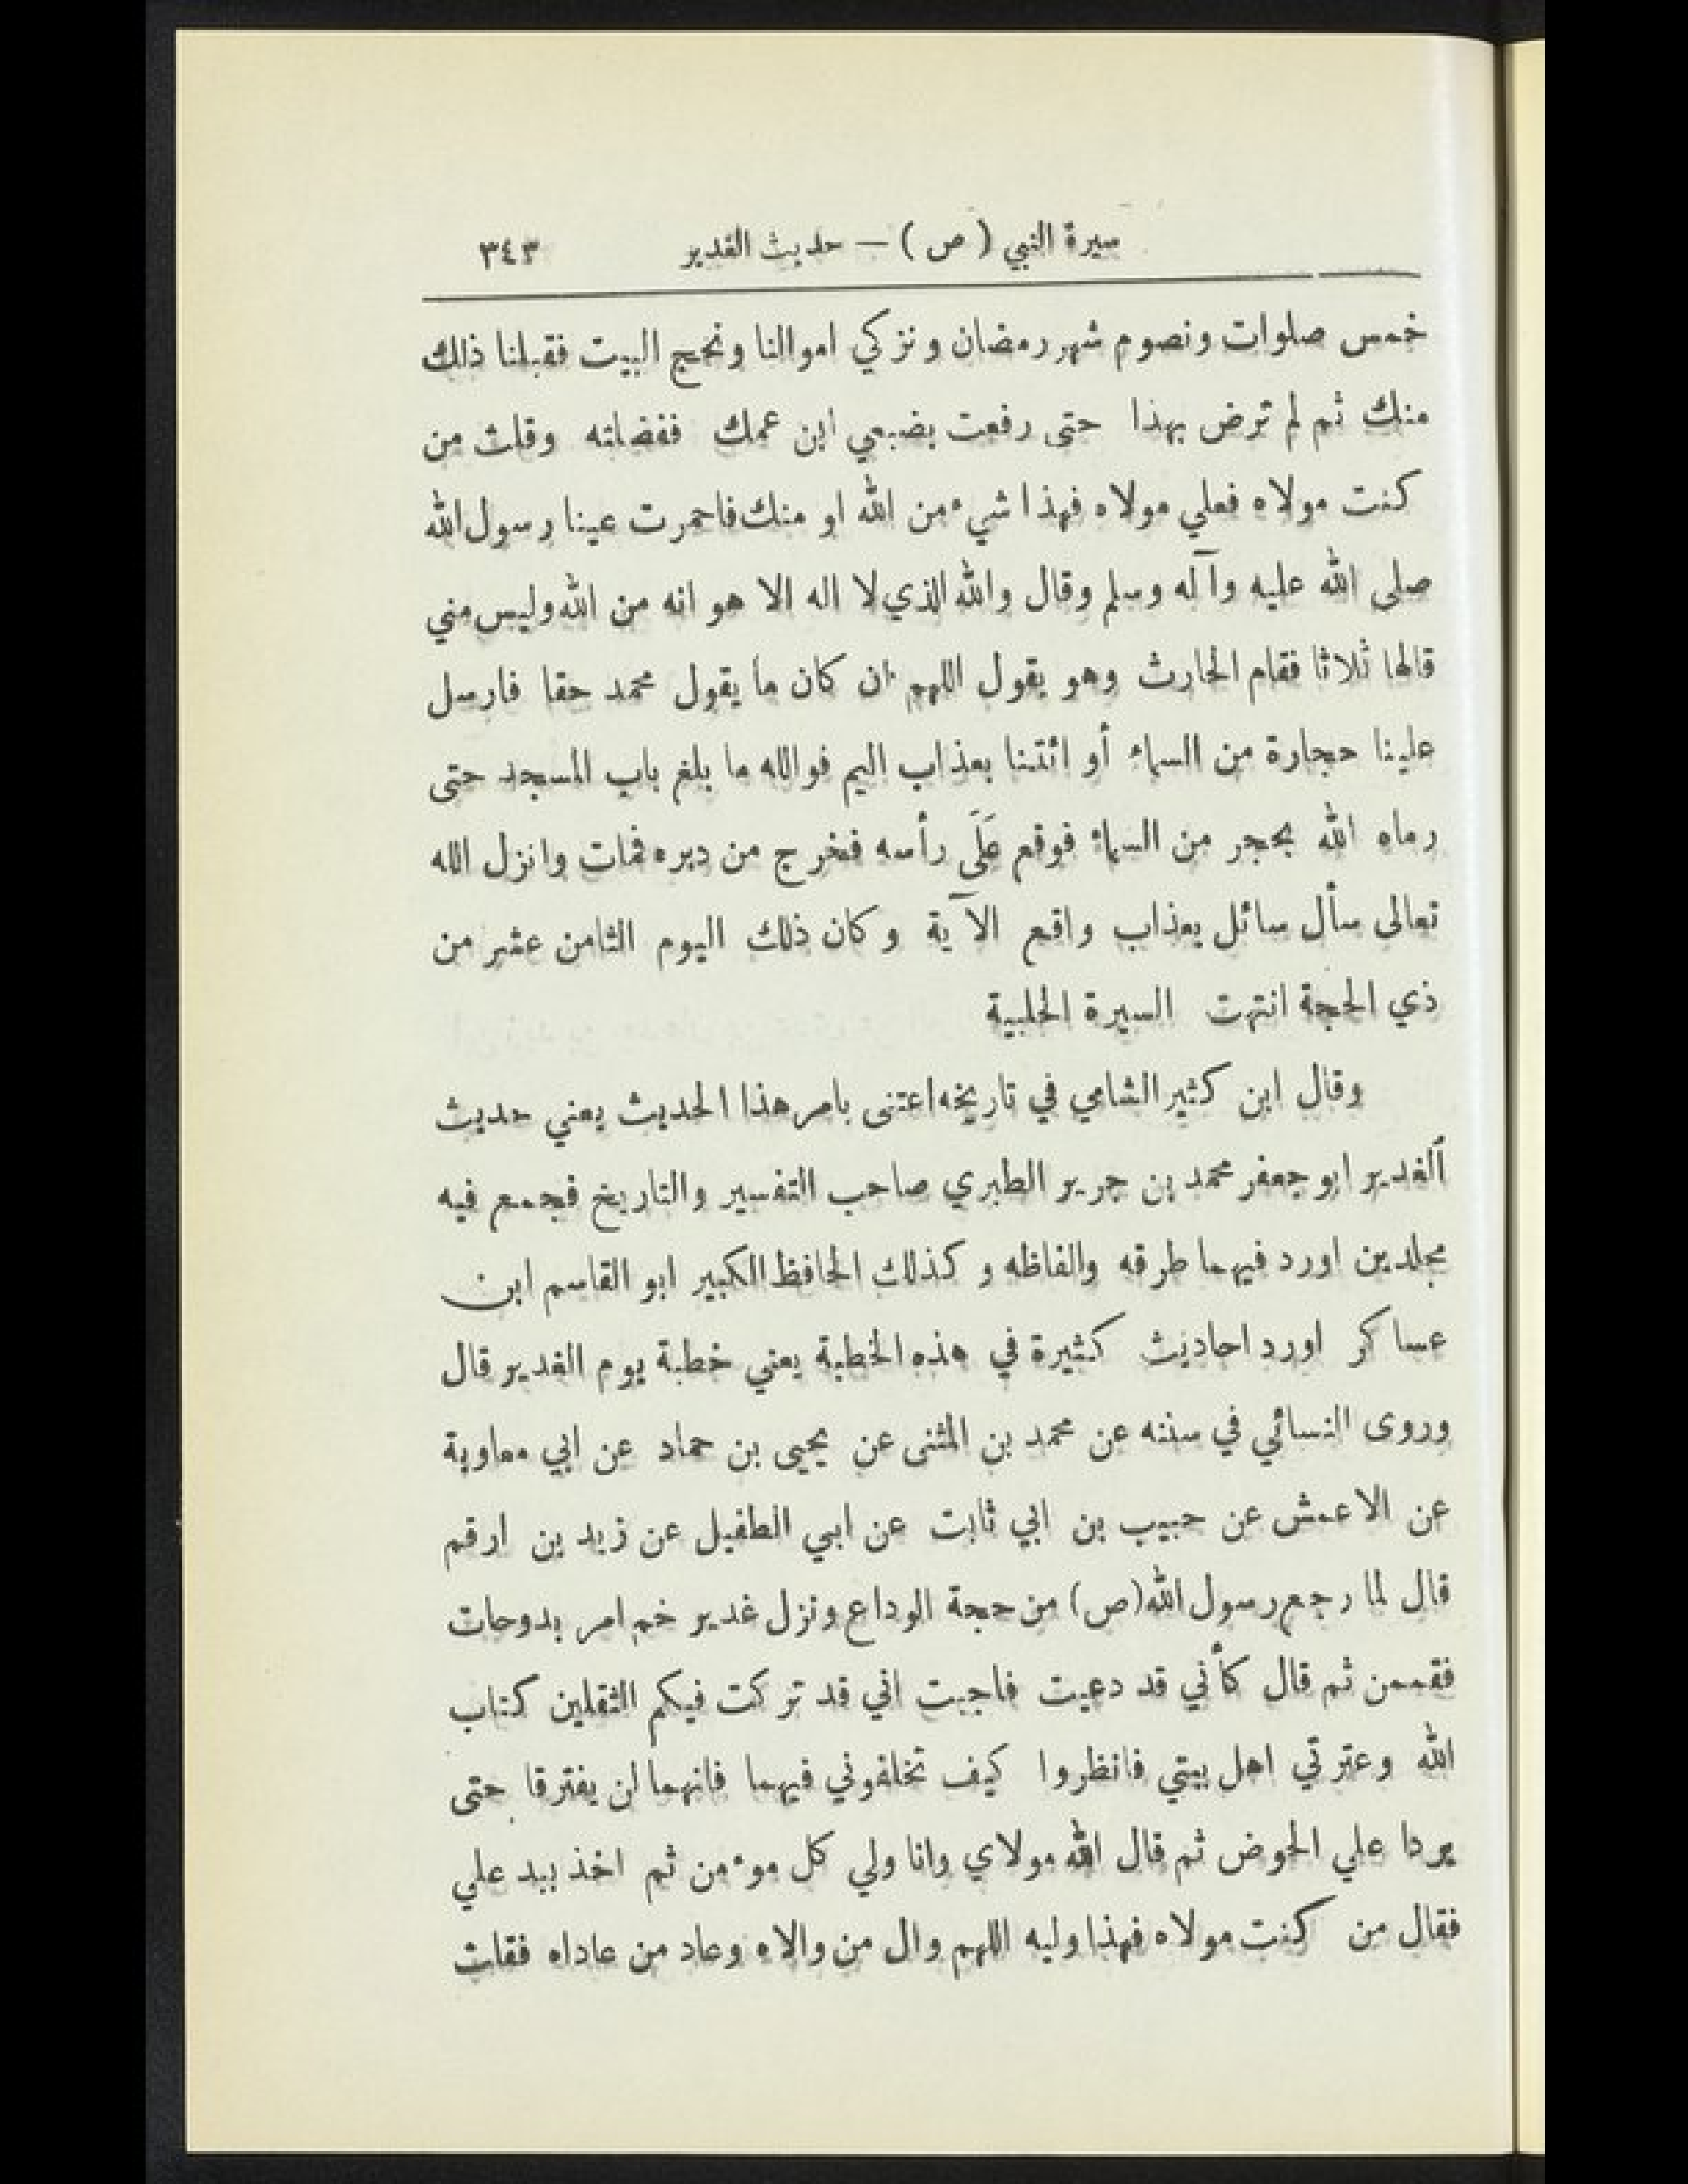 سيرة النبي ( ص ) — حديث الغدير ٣٤٣
خمس صلوات ونصوم شهر رمضان ونزكي اموالنا ونحج البيت فقبلنا ذلك
منك ثم لم ترض بهذا حتى رفعت بضبعي ابن عمك ففضلته وقلت من
كنت مولاه فعلي مولاه فهذا شيء من الله او منك فاحمرت عينا رسول الله
صلى الله عليه وآله وسلم وقال والله الذي لا اله الا هو انه من الله وليس مني
قالها ثلاثا فقام الحارث وهو يقول اللهم ان كان ما يقول محمد حقا فارسل
علينا حجارة من السماء أو ائتنا بعذاب اليم فوالله ما بلغ باب المسجد حتى
رماه الله بحجر من السماء فوقع عَلَى رأسه فخرج من دبره فمات وانزل الله
تعالى سأل سائل بعذاب واقع الآية وكان ذلك اليوم الثامن عشر من
ذي الحجة انتهت السيرة الحلبية
وقال ابن كثير الشامي في تاريخه اعتنى بامر هذا الحديث يعني حديث
ألغدير ابو جعفر محمد بن جرير الطبري صاحب التفسير والتاريخ فجمع فيه
مجلدين اورد فيهما طرقه والفاظه وكذلك الحافظ الكبير ابو القاسم ابن
عساكر اورد احاديث كثيرة في هذه الخطبة يعني خطبة يوم الغدير قال
وروى النسائي في سننه عن محمد بن المثنى عن يحيى بن حماد عن ابي معاوية
عن الاعمش عن حبيب بن ابي ثابت عن ابي الطفيل عن زيد بن ارقم
قال لما رجع رسول الله (ص) من حجة الوداع ونزل غدير خم امر بدوحات
فقممن ثم قال كأني قد دعيت فاجبت اني قد تركت فيكم الثقلين كتاب
الله وعترتي اهل بيتي فانظروا كيف تخلفوني فيهما فانهما لن يفترقا حتى
يردا علي الحوض ثم قال الله مولاي وانا ولي كل موءمن ثم اخذ بيد علي
فقال من كنت مولاه فهذا وليه اللهم وال من والاه وعاد من عاداه فقلت